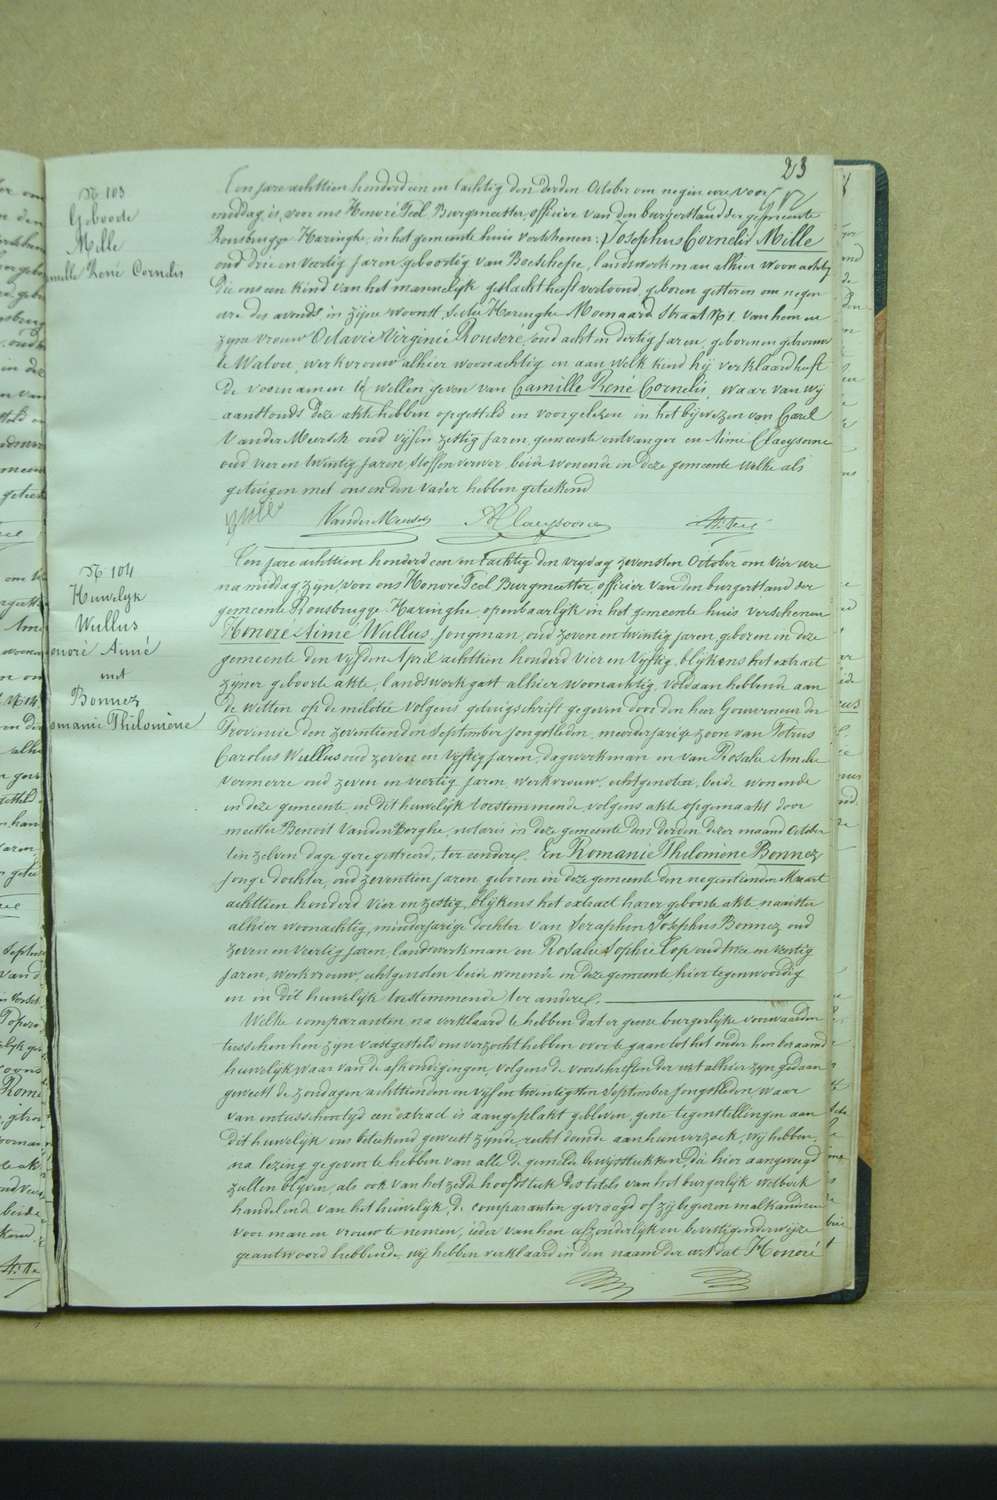 23
N 103
Geboorte
Mille
Camille René Cornelis
Ten jare achttien honderd een en tachtig den derden October om negen ure voor
middag is, voor ons Honoré Feel Burgmeester, officier van den burgerstand der gemeente
Rousbrugge Haringhe, in het gemeente huis verschenen: Josephus Cornelis Mille
oud drie en veertig jaren, geboortig van Boeschepe, landswerkman alhier woonachtig
die ons een kind van het mannelijk geslacht heeft vertoond, geboren gisteren om negen
ure des avonds in zijne woonst, sectie Haringhe Moenaard Straat N 1 van hem en
zijne vrouw Octavie Virginie Rousere, oud acht en dertig jaren, geboren en getrouwd
te Watou, werkvrouw alhier woonachtig en aan welk kind hij verklaard heeft
de voornamen te willen geven van Camille René Cornelis, waar van wij
aanstonds deze akte hebben opgesteld en voorgelezen in het bijwezen van Carel
Vander Meersch oud vijf en zestig jaren, gemeente ontvanger en Aimé Claeysoone
oud vier en twintig jaren, stoffen verwer, beide wonende in deze gemeente welke als
getuigen met ons en den vader hebben geteekend
Mille VanderMeersch A Claeysoone H. Feel
N 104
Huwelijk
Wullus
Honoré Aimé
met
Bonnez
Romanie Philomène
Ten jare achttien honderd een en tachtig den vrijdag zevensten October om vier ure
na middag zijn, voor ons Honoré Feel Burgmeester, officier van den burgerstand der
gemeente Rousbrugge Haringhe openbaarlijk in het gemeente huis verschenen
Honoré Aimé Wullus, jongman, oud zeven en twintig jaren, geboren in deze
gemeente den vijfden April achttien honderd vier en vijftig, blijkens het extract
zijner geboorte akte, landswerkgast alhier woonachtig, voldaan hebbende aan
de wetten op de militie volgens getuigschrift gegeven door den heer Gouverneur der
Provincie den zeventienden September jongstleden, meerderjarige zoon van Petrus
Carolus Wullus oud zeven en vijftig jaren, dagwerkman en van Rosalie Amelie
Vermerre oud zeven en veertig jaren werkvrouw, echtgenoten, beide wonende
in deze gemeente in dit huwelijk toestemmende, volgens akte opgemaakt door
meester Benoit Vanden Berghe, notaris in deze gemeente den derden dezer maand October
ten zelven dage geregistreerd, ter eendere. En Romanie Philomène Bonnez
jonge dochter, oud zeventien jaren, geboren in deze gemeente den negentienden Maart
achttien honderd vier en zestig, blijkens het extract harer geboorte akte naaister
alhier woonachtig, minderjarige dochter van Seraphin Josephus Bonnez oud
zeven en veertig jaren, landswerkman en Rosalie Sophie Top oud twee en veertig
jaren, werkvrouw, echtgenoten beide wonende in deze gemeente, hier tegenwoordig
en in dit huwelijk toestemmende ter andere.
Welke comparanten na verklaard te hebben dat er geene burgerlijke voorwaarden
tusschen hen zijn vastgesteld ons verzocht hebben over te gaan tot het onder hen beraamd
huwelijk waar van de afkondigingen, volgens de voorschriften der wet alhier zijn gedaan
geweest de zondagen achttienden en vijf en twintigsten September jongstleden waar
van ontusschentijd een extract is aangeplakt gebleven, geene tegenstellingen aan
dit huwelijk ons beteekend geweest zijnde, recht doende aan hun verzoek, wij hebben,
na lezing gegeven te hebben van alle de gemelde bewijsstukken, die hier aangevoegd
zullen blijven, als ook van het zesde hoofdstuk des titels van het burgerlijk wetboek
handelend van het huwelijk, de comparanten gevraagd of zij begeeren malkanderen
voor man en vrouw te nemen, ieder van hen afzonderlijk en bevestigenderwijze
geantwoord hebbende, wij hebben verklaard in den naam der wet dat Honoré